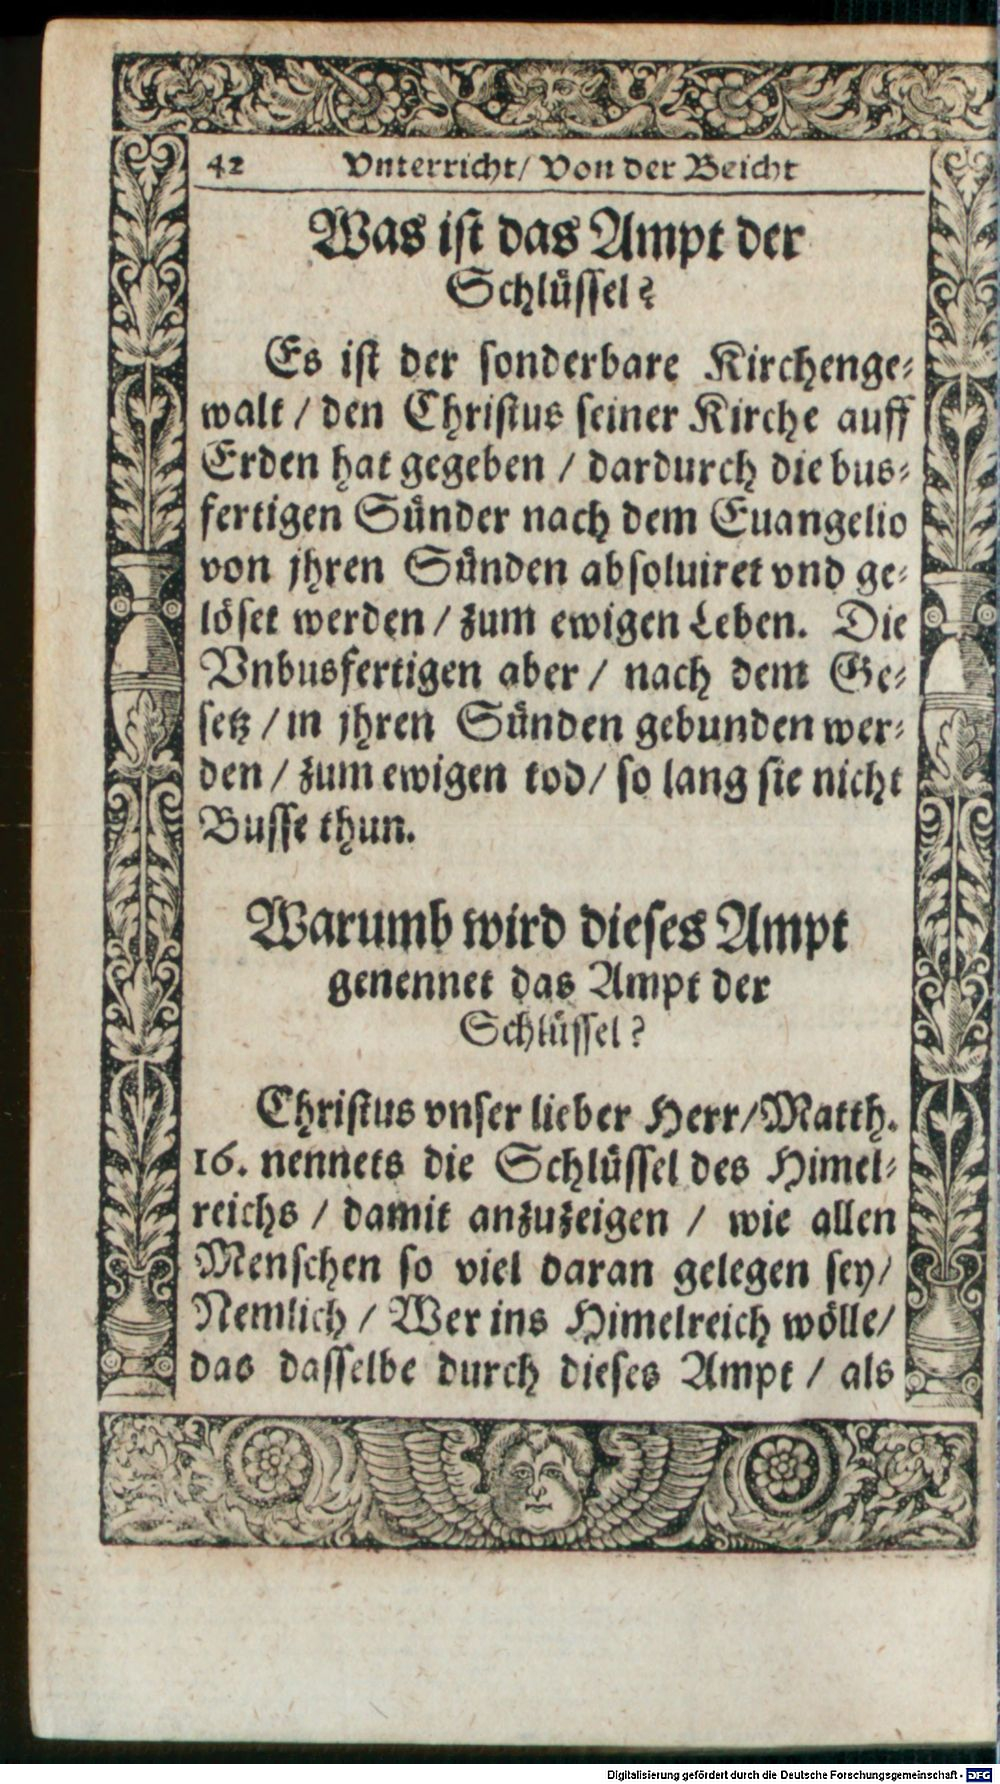 42 Vnterricht/ Von der Beicht
Was ist das Ampt der
Schlüssel?
Es ist der sonderbare Kirchenge⸗
walt / den Christus seiner Kirche auff
Erden hat gegeben / dardurch die bus⸗
fertigen Sünder nach dem Euangelio
von jhren Sünden absoluiret vnd ge⸗
löset werden / zum ewigen Leben. Die
Vnbusfertigen aber / nach dem Ge⸗
setz / in jhren Sünden gebunden wer⸗
den / zum ewigen tod / so lang sie nicht
Busse thun.
Warumb wird dieses Ampt
genennet das Ampt der
Schlüssel?
Christus vnser lieber Herr/Matth.
16. nennets die Schlüssel des Himel⸗
reichs / damit anzuzeigen / wie allen
Menschen so viel daran gelegen sey/
Nemlich / Wer ins Himelreich wölle/
das dasselbe durch dieses Ampt / als
Digitalisierung gefördert durch die Deutsche Forschungsgemeinschaft - DFG